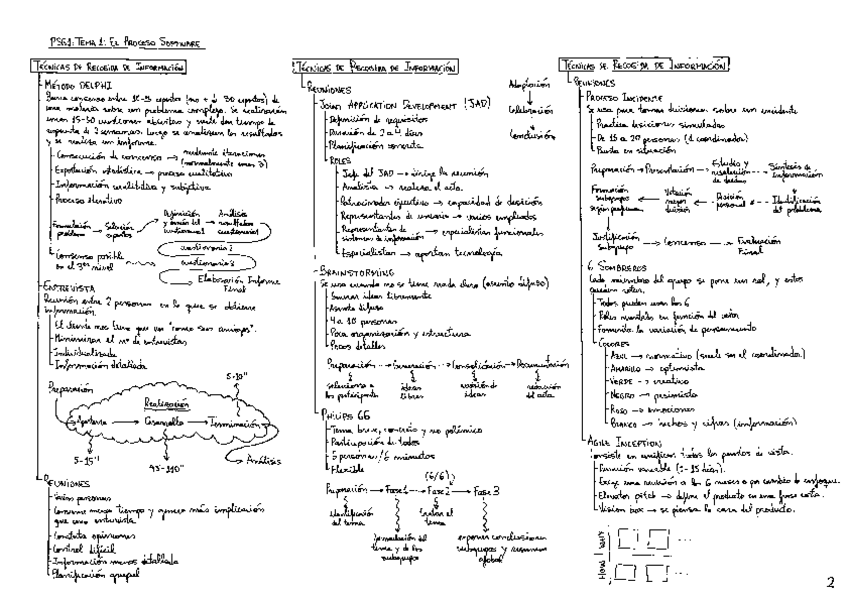 PSG1: TEMA 1: EL PROCESO SOFTWARE
TÉCNICAS DE RECOGIDA DE INFORMACIÓN
MÉTODO DELPHI
Busca consenso entre 15-5 expertos (no + de 30 expertos) de
una materia sobre un problema complejo. Se realizarán
unos 15-30 cuestiones abiertas y suele dar tiempo de
respuesta de 2 semanas. Luego se analizan los resultados
y se realiza un informe.
Consecución de consenso → mediante iteraciones
(normalmente unas 3)
Explotación estadística → proceso cualitativo
Información cualitativa y subjetiva
Proceso iterativo
Formulación problema → Selección expertos → Definición y envío del cuestionario 1 → Análisis resultados cuestionario 1
cuestionario 2
cuestionario 3
Consenso posible
en el 3er nivel
Elaboración Informe
Final
ENTREVISTA
Reunión entre 2 personas en la que se obtiene
información.
El cliente nos tiene que ver "como sus amigos".
Minimizar el nº de entrevistas
Individualizada
Información detallada
Preparación
Realización
5-10"
Apertura → Desarrollo → Terminación
5-15"
45-110"
Análisis
REUNIONES
Varias personas
Consume menos tiempo y genera más implicación
que una entrevista.
Contrasta opiniones
Control difícil
Información menos detallada
Planificación grupal
TÉCNICAS DE RECOGIDA DE INFORMACIÓN
REUNIONES
JOINT APPLICATION DEVELOPMENT (JAD)
Definición de requisitos
Duración de 2 a 4 días
Planificación concreta
Adaptación
Colaboración
Conclusión
ROLES
Jefe del JAD → dirige la reunión
Analista → realiza el acta.
Patrocinador ejecutivo → capacidad de decisión
Representantes de usuario → varios empleados
Representantes de
sistemas de información → especialistas funcionales
Especialistas → aportan tecnología
BRAINSTORMING
Se usa cuando no se tiene nada claro (asunto difuso)
Generar ideas libremente
Asunto difuso
4 a 10 personas
Poca organización y estructura
Pocos detalles
Preparación → Generación → Consolidación → Documentación
seleccionar a
los participantes
ideas
libres
revisión de
ideas
redacción
del acta
PHILIPS 66
Tema breve, concreto y no polémico
Participación de todos
6 personas / 6 minutos
Flexible
(6/6)
Preparación → Fase 1 → Fase 2 → Fase 3
identificación
del tema
formulación del
tema y de los
subgrupos
tema
exponer conclusiones
subgrupos y resumen
global
TÉCNICAS DE RECOGIDA DE INFORMACIÓN
REUNIONES
PROCESO INCIDENTE
Se usa para tomar decisiones sobre un incidente
Practica decisiones simuladas
De 15 a 20 personas (1 coordinador)
Puesta en situación
Preparación → Presentación → Estudio y recolección de datos → Síntesis de información
Formación subgrupos según posturas ← Votación mejor decisión ← Decisión personal ← Identificación del problema
Justificación
subgrupo → Consenso → Evaluación
Final
6 SOMBREROS
Cada miembro del grupo se pone un rol, y estos
pueden rotar.
Todos pueden usar los 6
Roles variables en función del color
Fomenta la variación de pensamiento
COLORES
AZUL → normativo (suele ser el coordinador)
AMARILLO → optimista
VERDE → creativo
NEGRO → pesimista
ROJO → emociones
BLANCO → hechos y cifras (información)
AGILE INCEPTION
Consiste en unificar todos los puntos de vista.
Duración variable (1-15 días).
Exige una reunión a los 6 meses o por cambio de enfoque.
Elevator pitch → define el producto en una frase corta.
Vision box → se piensa la caja del producto.
2